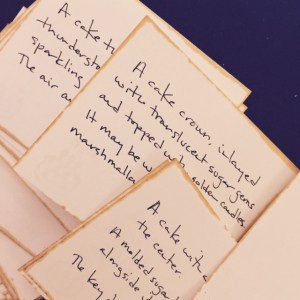 A cake th
thundersto
sparkling
The air a
A cake crown, inlayed
with translucent sugar gems
and topped with golden candles
It may be w
marshmallo
A cake with
the center
A molded suga
alongside i
The key